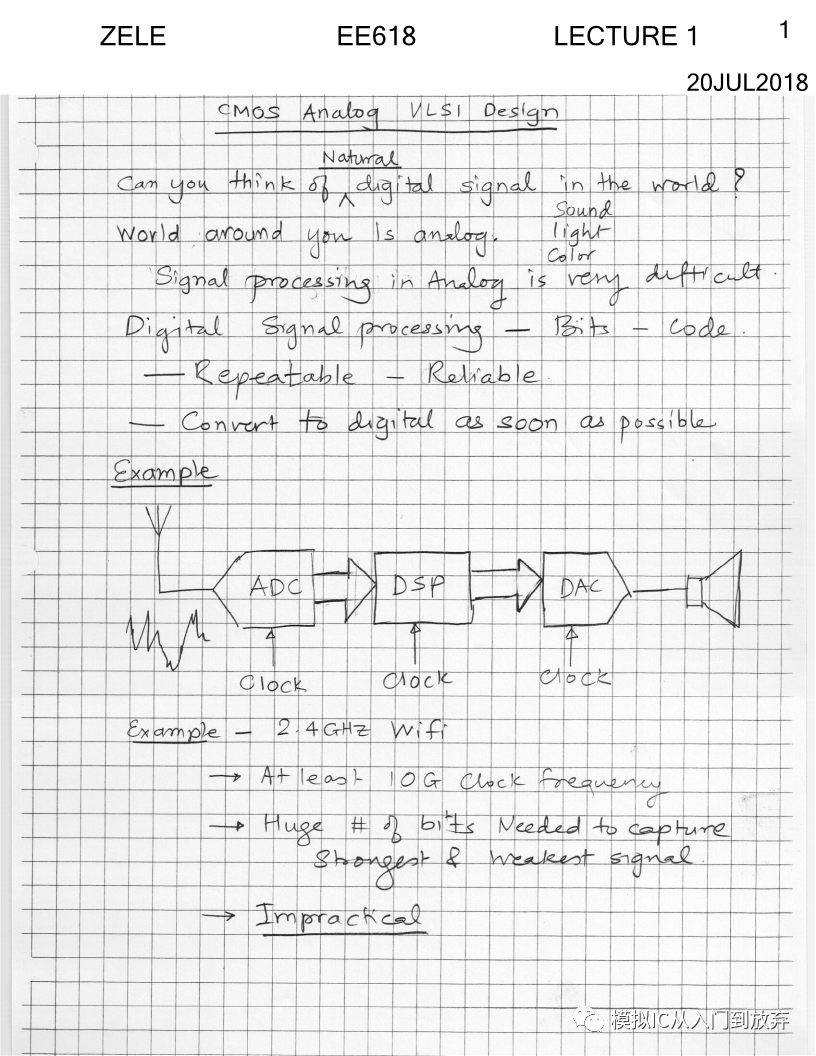 ZELE EE618 LECTURE 1 1
20JUL2018
CMOS Analog VLSI Design
Natural
Can you think of ^ digital signal in the world?
Sound
World around you Is analog. light
Color
Signal processing in Analog is very difficult.
Digital Signal processing — Bits — Code.
— Repeatable — Reliable.
— Convert to digital as soon as possible
Example
ADC DSP DAC
Clock Clock Clock
Example — 2.4GHz Wifi
→ At least 10G Clock frequency
→ Huge # of bits Needed to capture
Strongest & Weakest signal.
→ Impractical
模拟IC从入门到放弃